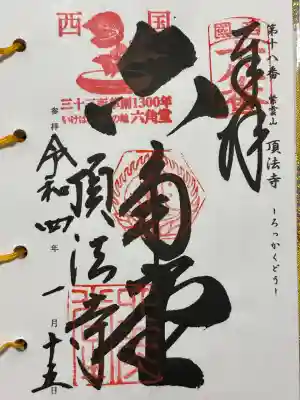 第十八番 紫雲山 頂法寺 ーろっかくどうー
奉拝
西国
三十三所草創1300年
いけばなの根 六角堂
六角堂
頂法寺
参拝 令和四年 一月 十五日